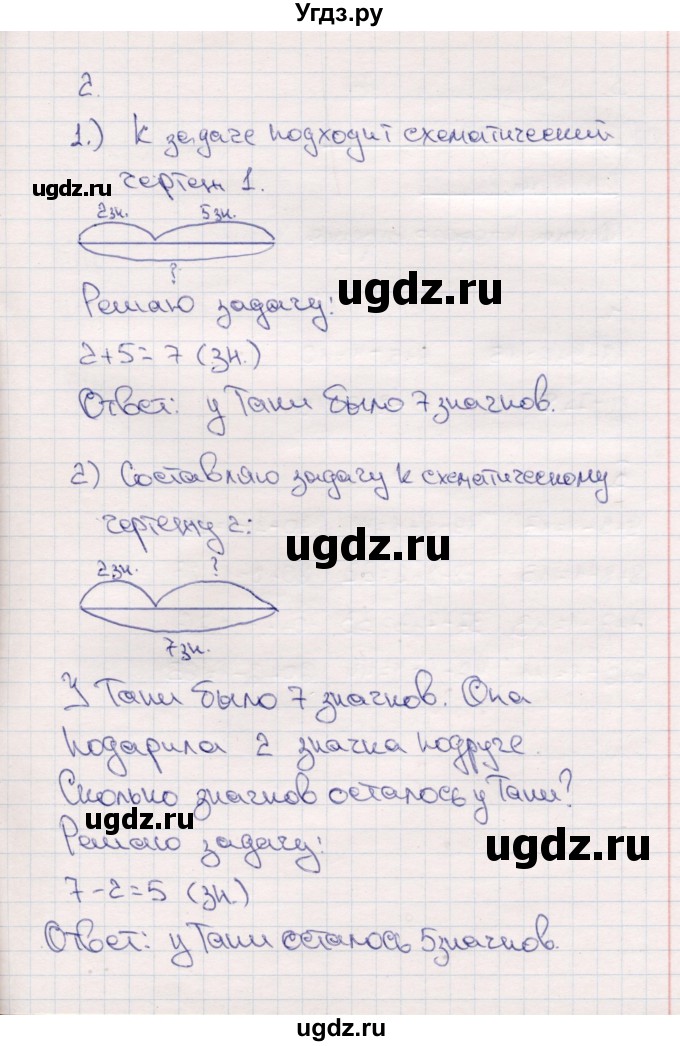 Угдз.ру
2.
1.) К задаче подходит схематический
ugdz.ru
чертеж 1.
2зн. 5зн.
?
ugdz.ru
Решаю задачу:
2+5=7 (зн.)
Ответ: у Тани было 7 значков.
2) Составляю задачу к схематическому
чертежу 2:
ugdz.ru
2зн. ?
7зн.
У Тани было 7 значков. Она
подарила 2 значка подруге.
Сколько значков осталось у Тани?
ugdz.ru
Решаю задачу:
ugdz.ru
7-2=5 (зн.)
Ответ: у Тани осталось 5 значков.
ugdz.ru